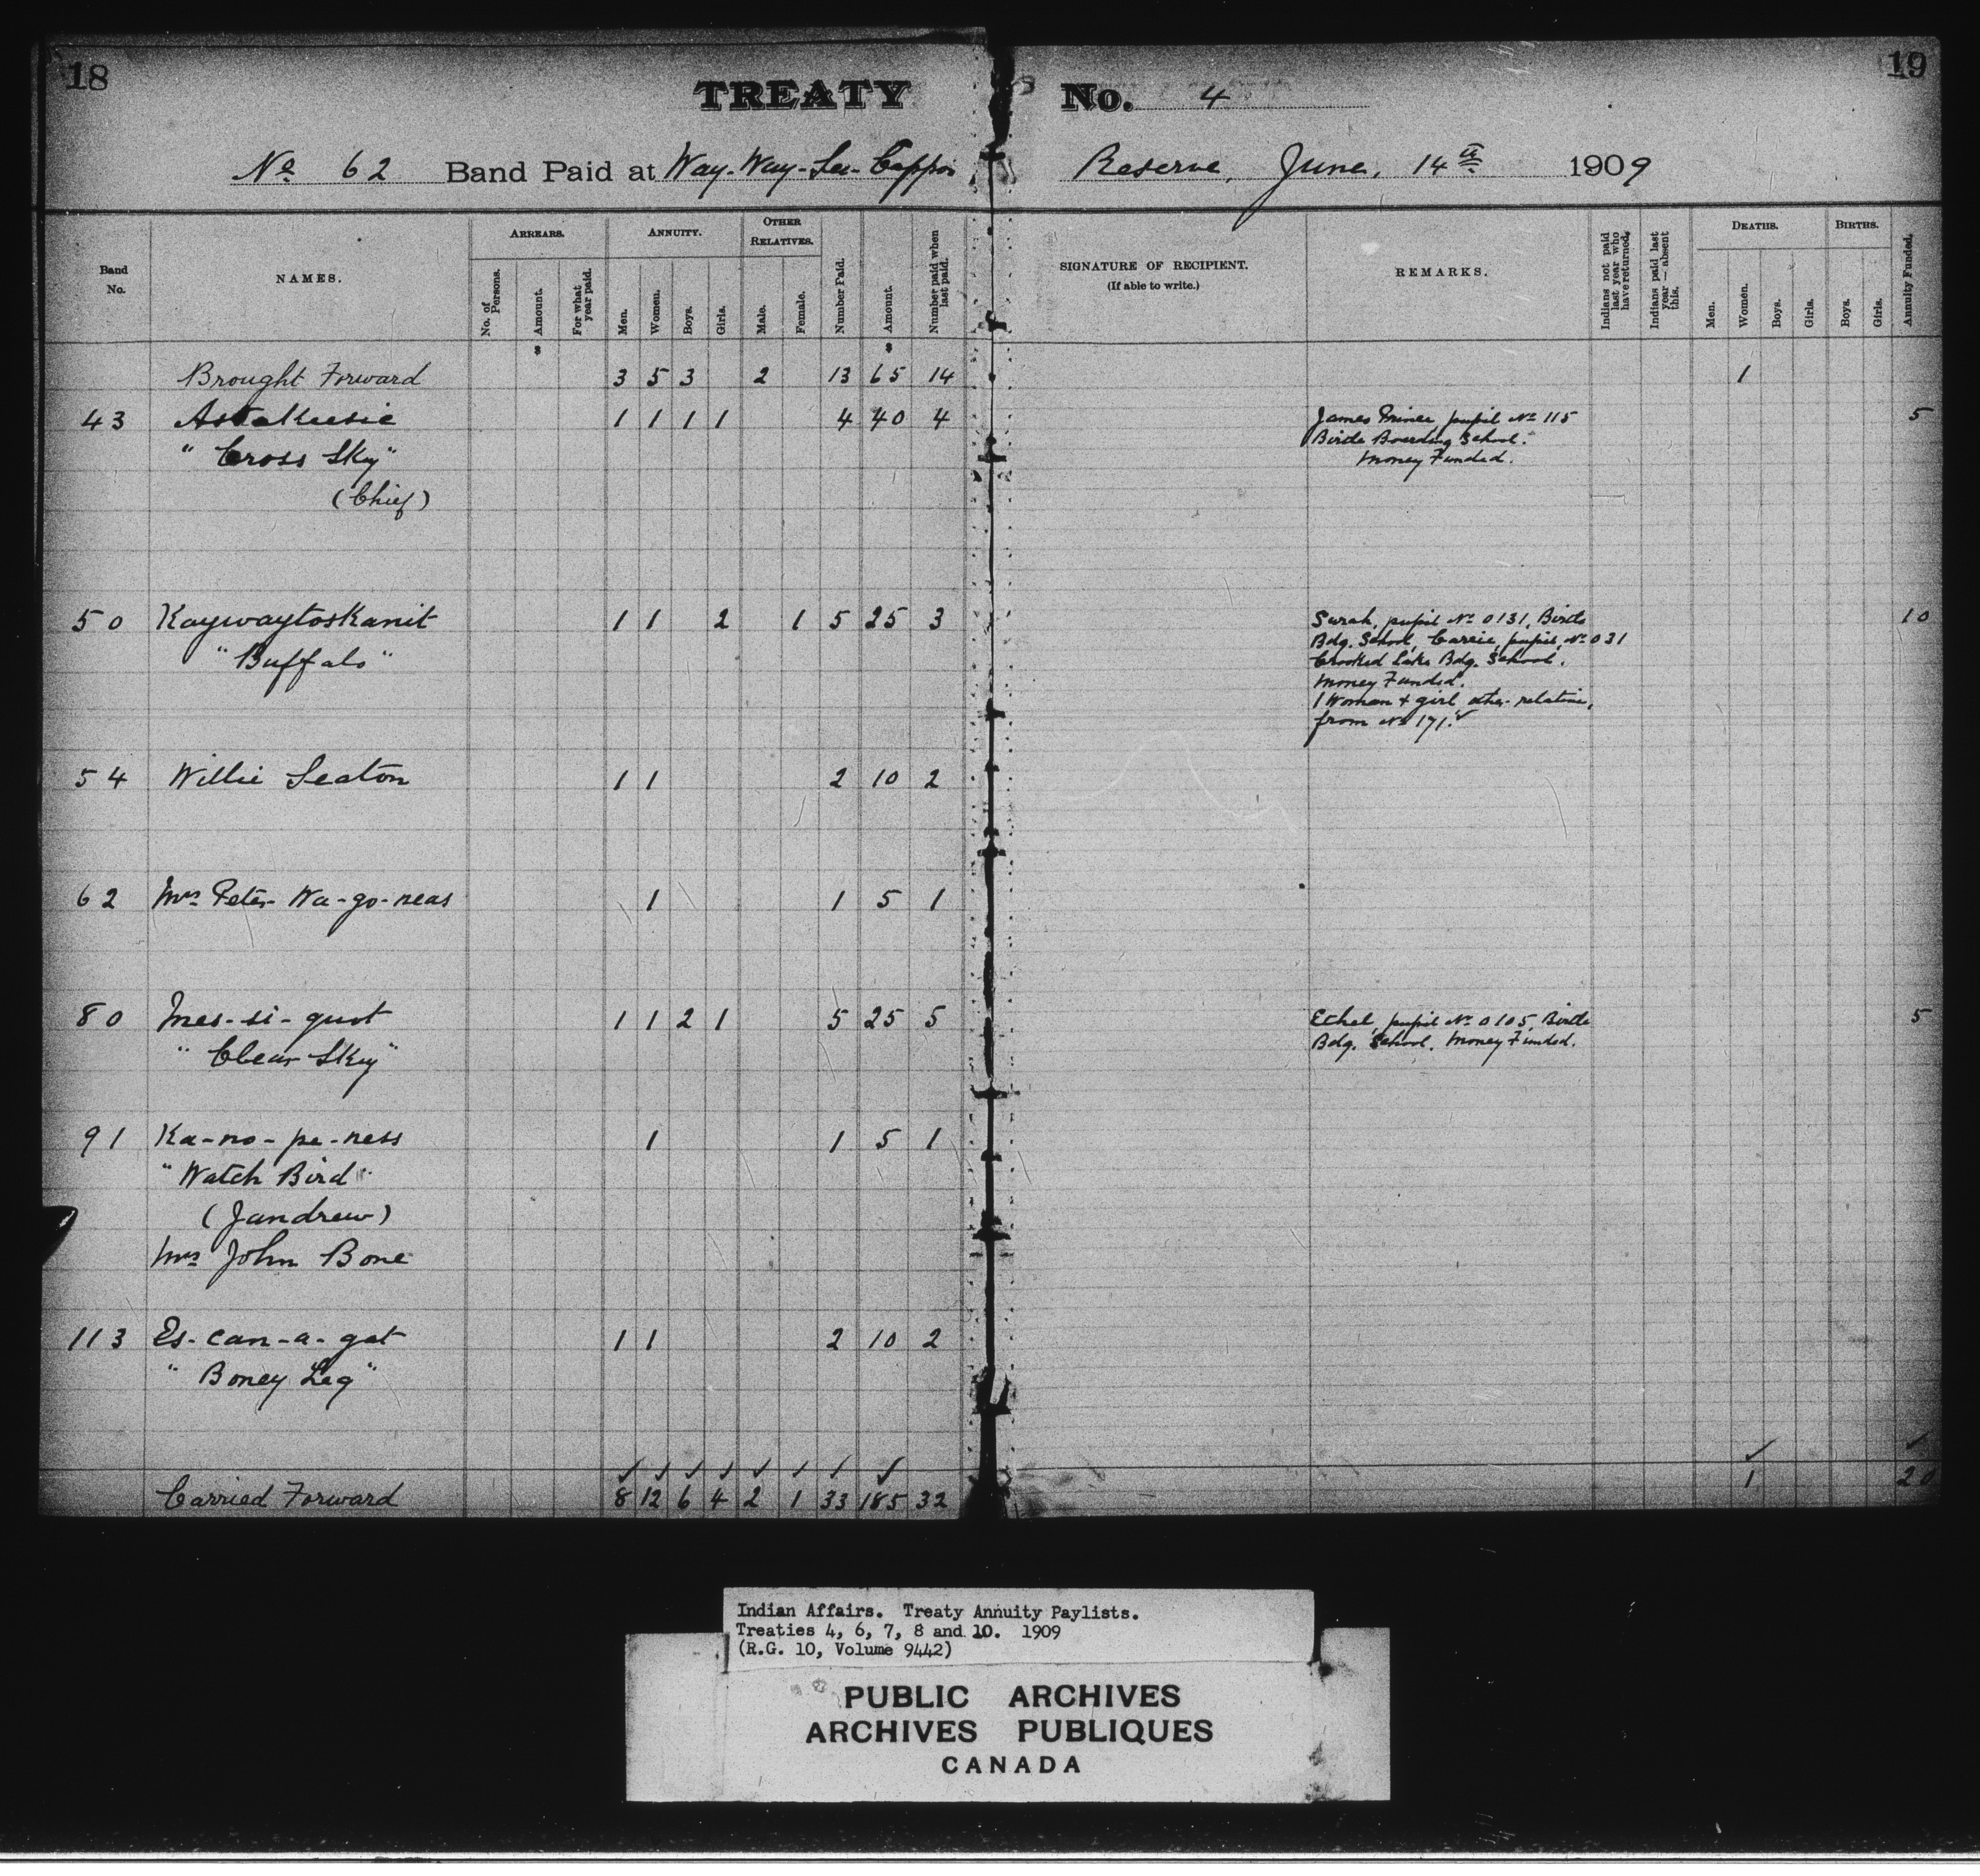 18 TREATY No. 4 19
No 62 Band Paid at Way-Way-See-Cappo Reserve, June, 14th 1909
Band No.
NAMES.
ARREARS.
No. of Persons.
Amount.
For what year paid.
ANNUITY.
Men.
Women.
Boys.
Girls.
OTHER RELATIVES.
Male.
Female.
Number Paid.
Amount.
Number paid when last paid.
SIGNATURE OF RECIPIENT.
(If able to write.)
REMARKS.
Indians not paid last year who have returned.
Indians paid last year — absent this.
DEATHS.
Men.
Women.
Boys.
Girls.
BIRTHS.
Boys.
Girls.
Annuity Funded.
$ $
Brought Forward 3 5 3 2 13 65 14 1
43 Astakeesic 1 1 1 1 4 40 4 James Prince pupil No 115 5
"Cross Sky" Birtle Boarding School.
Money Funded.
(Chief)
50 Kaywaytoskanit 1 1 2 1 5 25 3 Sarah, pupil No 0131, Birtle 10
"Buffalo" Bdg. School, Carrie, pupil No 031
Crooked Lake Bdg. School.
Money Funded.
1 Woman + girl other relative,
from No 171. ✓
54 Willie Seaton 1 1 2 10 2
62 Mrs Peter Wa-go-neas 1 1 5 1
80 Mes-si-quot 1 1 2 1 5 25 5 Ethel, pupil No 0105, Birtle 5
"Clear Sky" Bdg. School. Money Funded.
91 Ka-no-pe-ness 1 1 5 1
"Watch Bird"
(Jandrew)
Mrs John Bone
113 Es-can-a-gat 1 1 2 10 2
"Boney Leg"
✓ ✓ ✓ ✓ ✓ ✓ ✓ ✓ ✓ ✓
Carried Forward 8 12 6 4 2 1 33 185 32 1 20
Indian Affairs. Treaty Annuity Paylists.
Treaties 4, 6, 7, 8 and 10. 1909
(R.G. 10, Volume 9442)
PUBLIC ARCHIVES
ARCHIVES PUBLIQUES
CANADA